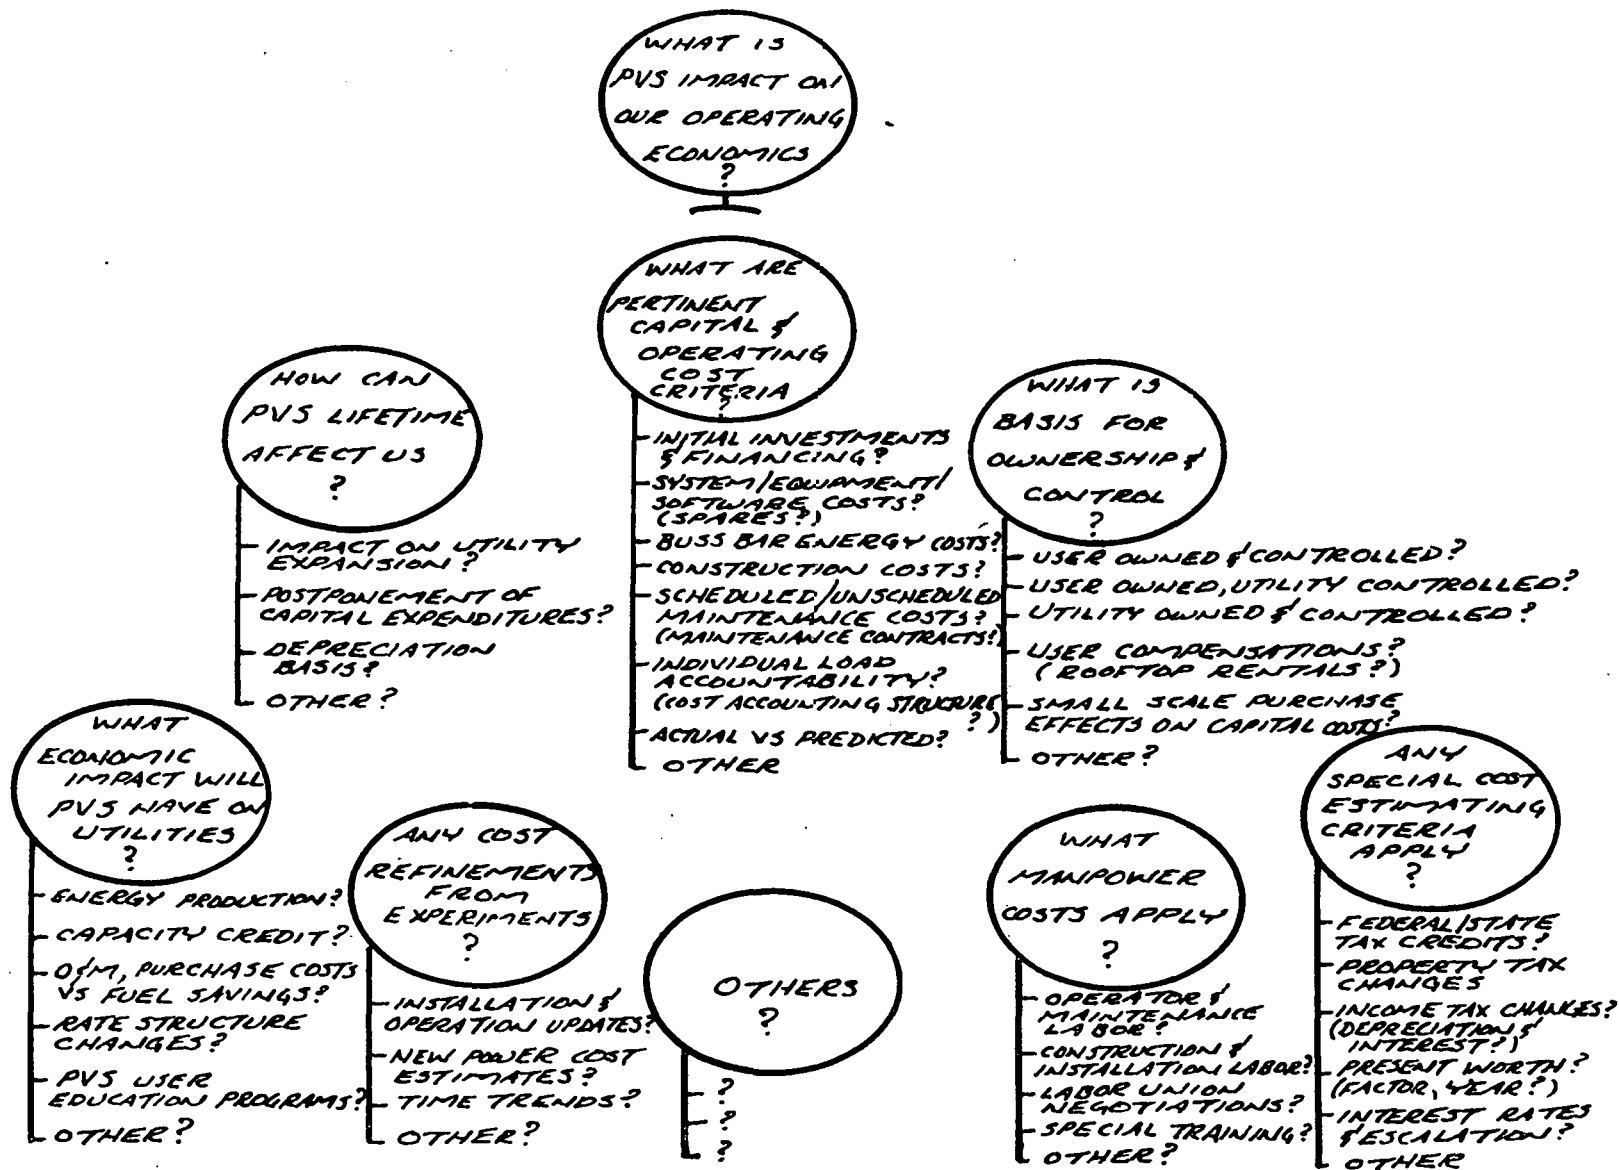 WHAT IS
PVS IMPACT ON
OUR OPERATING
ECONOMICS
?
WHAT ARE
PERTINENT
CAPITAL &
OPERATING
COST
CRITERIA
?
INITIAL INVESTMENTS
& FINANCING?
SYSTEM/EQUIPMENT/
SOFTWARE COSTS?
(SPARES?)
BUSS BAR ENERGY COSTS?
CONSTRUCTION COSTS?
SCHEDULED/UNSCHEDULED
MAINTENANCE COSTS?
(MAINTENANCE CONTRACTS?)
INDIVIDUAL LOAD
ACCOUNTABILITY?
(COST ACCOUNTING STRUCTURE
?)
ACTUAL VS PREDICTED?
OTHER
HOW CAN
PVS LIFETIME
AFFECT US
?
IMPACT ON UTILITY
EXPANSION?
POSTPONEMENT OF
CAPITAL EXPENDITURES?
DEPRECIATION
BASIS?
OTHER?
WHAT IS
BASIS FOR
OWNERSHIP &
CONTROL
?
USER OWNED & CONTROLLED?
USER OWNED, UTILITY CONTROLLED?
UTILITY OWNED & CONTROLLED?
USER COMPENSATIONS?
(ROOFTOP RENTALS?)
SMALL SCALE PURCHASE
EFFECTS ON CAPITAL COSTS?
OTHER?
WHAT
ECONOMIC
IMPACT WILL
PVS HAVE ON
UTILITIES
?
ENERGY PRODUCTION?
CAPACITY CREDIT?
O&M, PURCHASE COSTS
VS FUEL SAVINGS?
RATE STRUCTURE
CHANGES?
PVS USER
EDUCATION PROGRAMS?
OTHER?
ANY COST
REFINEMENTS
FROM
EXPERIMENTS
?
INSTALLATION &
OPERATION UPDATES?
NEW POWER COST
ESTIMATES?
TIME TRENDS?
OTHER?
OTHERS
?
?
?
?
WHAT
MANPOWER
COSTS APPLY
?
OPERATOR &
MAINTENANCE
LABOR?
CONSTRUCTION &
INSTALLATION LABOR?
LABOR UNION
NEGOTIATIONS?
SPECIAL TRAINING?
OTHER?
ANY
SPECIAL COST
ESTIMATING
CRITERIA
APPLY
?
FEDERAL/STATE
TAX CREDITS?
PROPERTY TAX
CHANGES
INCOME TAX CHANGES?
(DEPRECIATION &
INTEREST?)
PRESENT WORTH?
(FACTOR, YEAR?)
INTEREST RATES
& ESCALATION?
OTHER